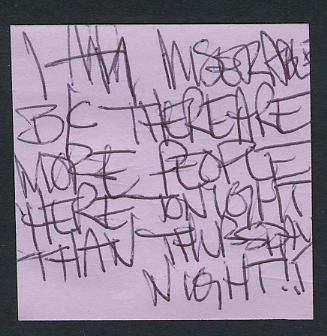 I AM MISERABLE
BC THERE ARE
MORE PEOPLE
HERE TONIGHT
THAN THURSDAY
NIGHT!!